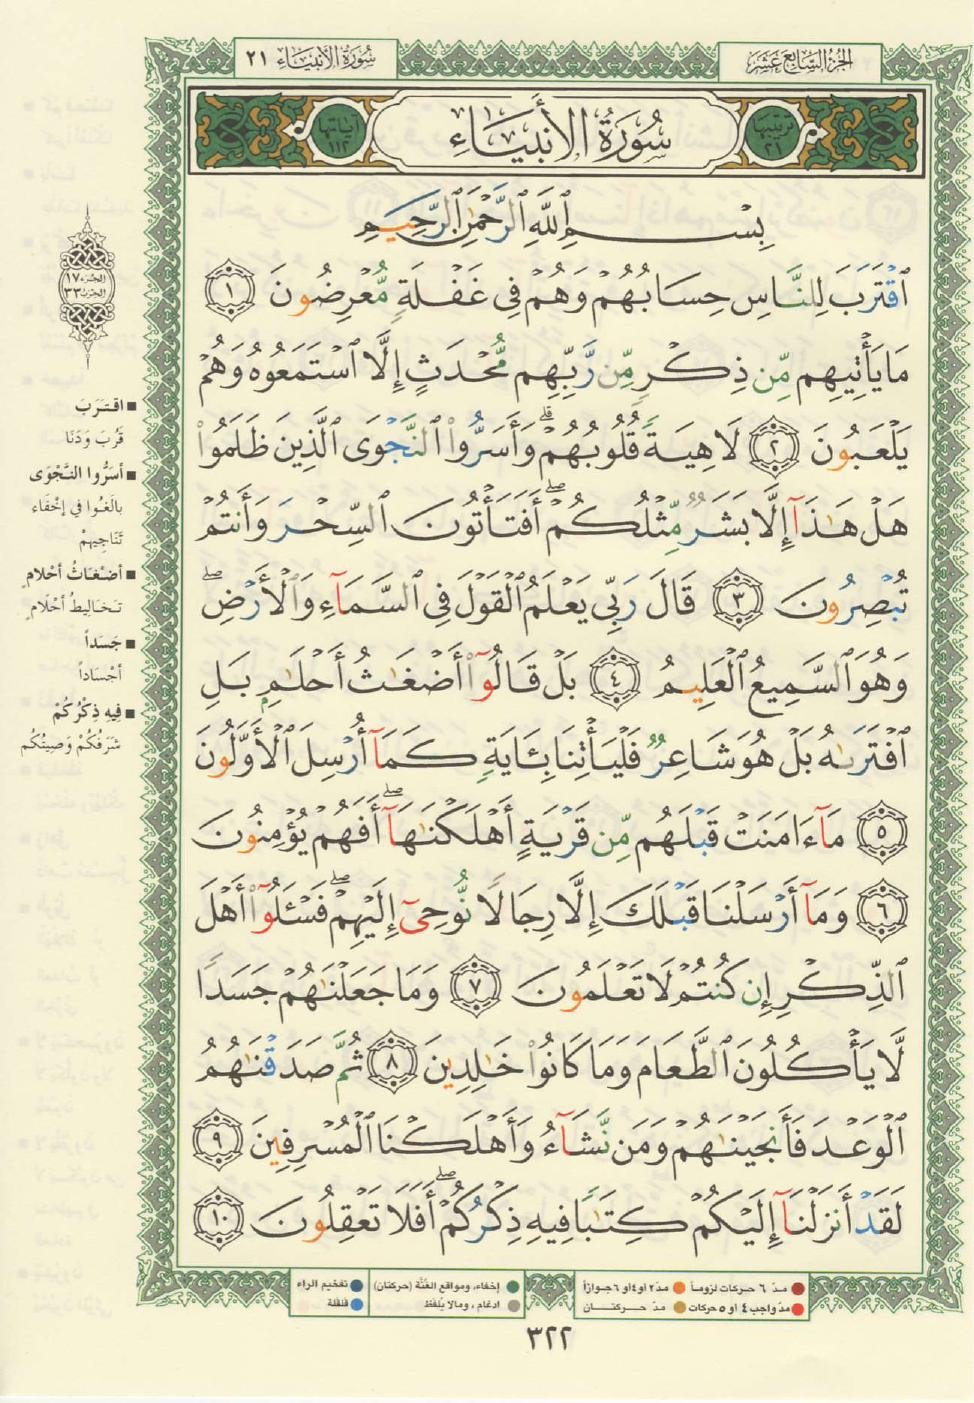 الجزء السابع عشر
سورة الأنبياء ٢١
ترتيبها ٢١
سورة الأنبياء
آياتها ١١٢
بِسْمِ ٱللَّهِ ٱلرَّحْمَٰنِ ٱلرَّحِيمِ
ٱقْتَرَبَ لِلنَّاسِ حِسَابُهُمْ وَهُمْ فِى غَفْلَةٍ مُّعْرِضُونَ ١
مَا يَأْتِيهِم مِّن ذِكْرٍ مِّن رَّبِّهِم مُّحْدَثٍ إِلَّا ٱسْتَمَعُوهُ وَهُمْ
يَلْعَبُونَ ٢ لَاهِيَةً قُلُوبُهُمْ ۗ وَأَسَرُّوا۟ ٱلنَّجْوَى ٱلَّذِينَ ظَلَمُوا۟
هَلْ هَٰذَآ إِلَّا بَشَرٌ مِّثْلُكُمْ ۖ أَفَتَأْتُونَ ٱلسِّحْرَ وَأَنتُمْ
تُبْصِرُونَ ٣ قَالَ رَبِّى يَعْلَمُ ٱلْقَوْلَ فِى ٱلسَّمَآءِ وَٱلْأَرْضِ ۖ
وَهُوَ ٱلسَّمِيعُ ٱلْعَلِيمُ ٤ بَلْ قَالُوٓا۟ أَضْغَٰثُ أَحْلَٰمٍۭ بَلِ
ٱفْتَرَىٰهُ بَلْ هُوَ شَاعِرٌ فَلْيَأْتِنَا بِـَٔايَةٍ كَمَآ أُرْسِلَ ٱلْأَوَّلُونَ
٥ مَآ ءَامَنَتْ قَبْلَهُم مِّن قَرْيَةٍ أَهْلَكْنَٰهَآ ۖ أَفَهُمْ يُؤْمِنُونَ
٦ وَمَآ أَرْسَلْنَا قَبْلَكَ إِلَّا رِجَالًا نُّوحِىٓ إِلَيْهِمْ ۖ فَسْـَٔلُوٓا۟ أَهْلَ
ٱلذِّكْرِ إِن كُنتُمْ لَا تَعْلَمُونَ ٧ وَمَا جَعَلْنَٰهُمْ جَسَدًا
لَّا يَأْكُلُونَ ٱلطَّعَامَ وَمَا كَانُوا۟ خَٰلِدِينَ ٨ ثُمَّ صَدَقْنَٰهُمُ
ٱلْوَعْدَ فَأَنجَيْنَٰهُمْ وَمَن نَّشَآءُ وَأَهْلَكْنَا ٱلْمُسْرِفِينَ ٩
لَقَدْ أَنزَلْنَآ إِلَيْكُمْ كِتَٰبًا فِيهِ ذِكْرُكُمْ ۖ أَفَلَا تَعْقِلُونَ ١٠
الجزء ١٧
الحزب ٣٣
■ اقتَرَبَ
قَرُبَ وَدَنَا
■ أسَرُّوا النَّجْوَى
بالَغُوا في إخْفَاء
تَنَاجِيهِمْ
■ أضْغَاثُ أحْلامٍ
تَخَالِيطُ أحْلَامٍ
■ جَسَداً
أجْسَاداً
■ فِيهِ ذِكْرُكُمْ
شَرَفُكُمْ وَصِيتُكُم
مدّ ٦ حركات لزوماً ● مدّ٢ او٤او ٦جوازاً
مدّ واجب ٤ او ٥ حركات ● مدّ حركتان
إخفاء، ومواقع الغُنَّة (حركتان)
ادغام ، ومالا يُلفَظ
تفخيم الراء
قلقلة
٣٢٢